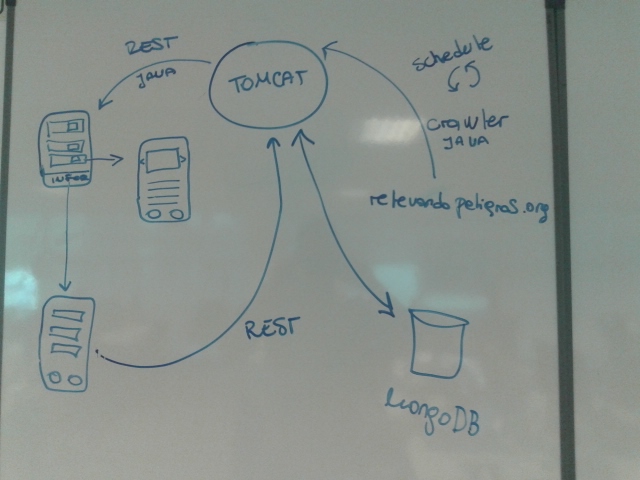 REST
JAVA
TOMCAT
schedule
crawler
JAVA
relevandopeligros.org
INFOR
REST
MongoDB